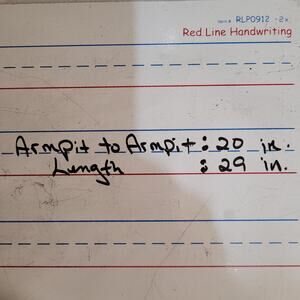 Item# RLP0912 -2x
Red Line Handwriting
Armpit to Armpit : 20 in.
Length : 29 in.